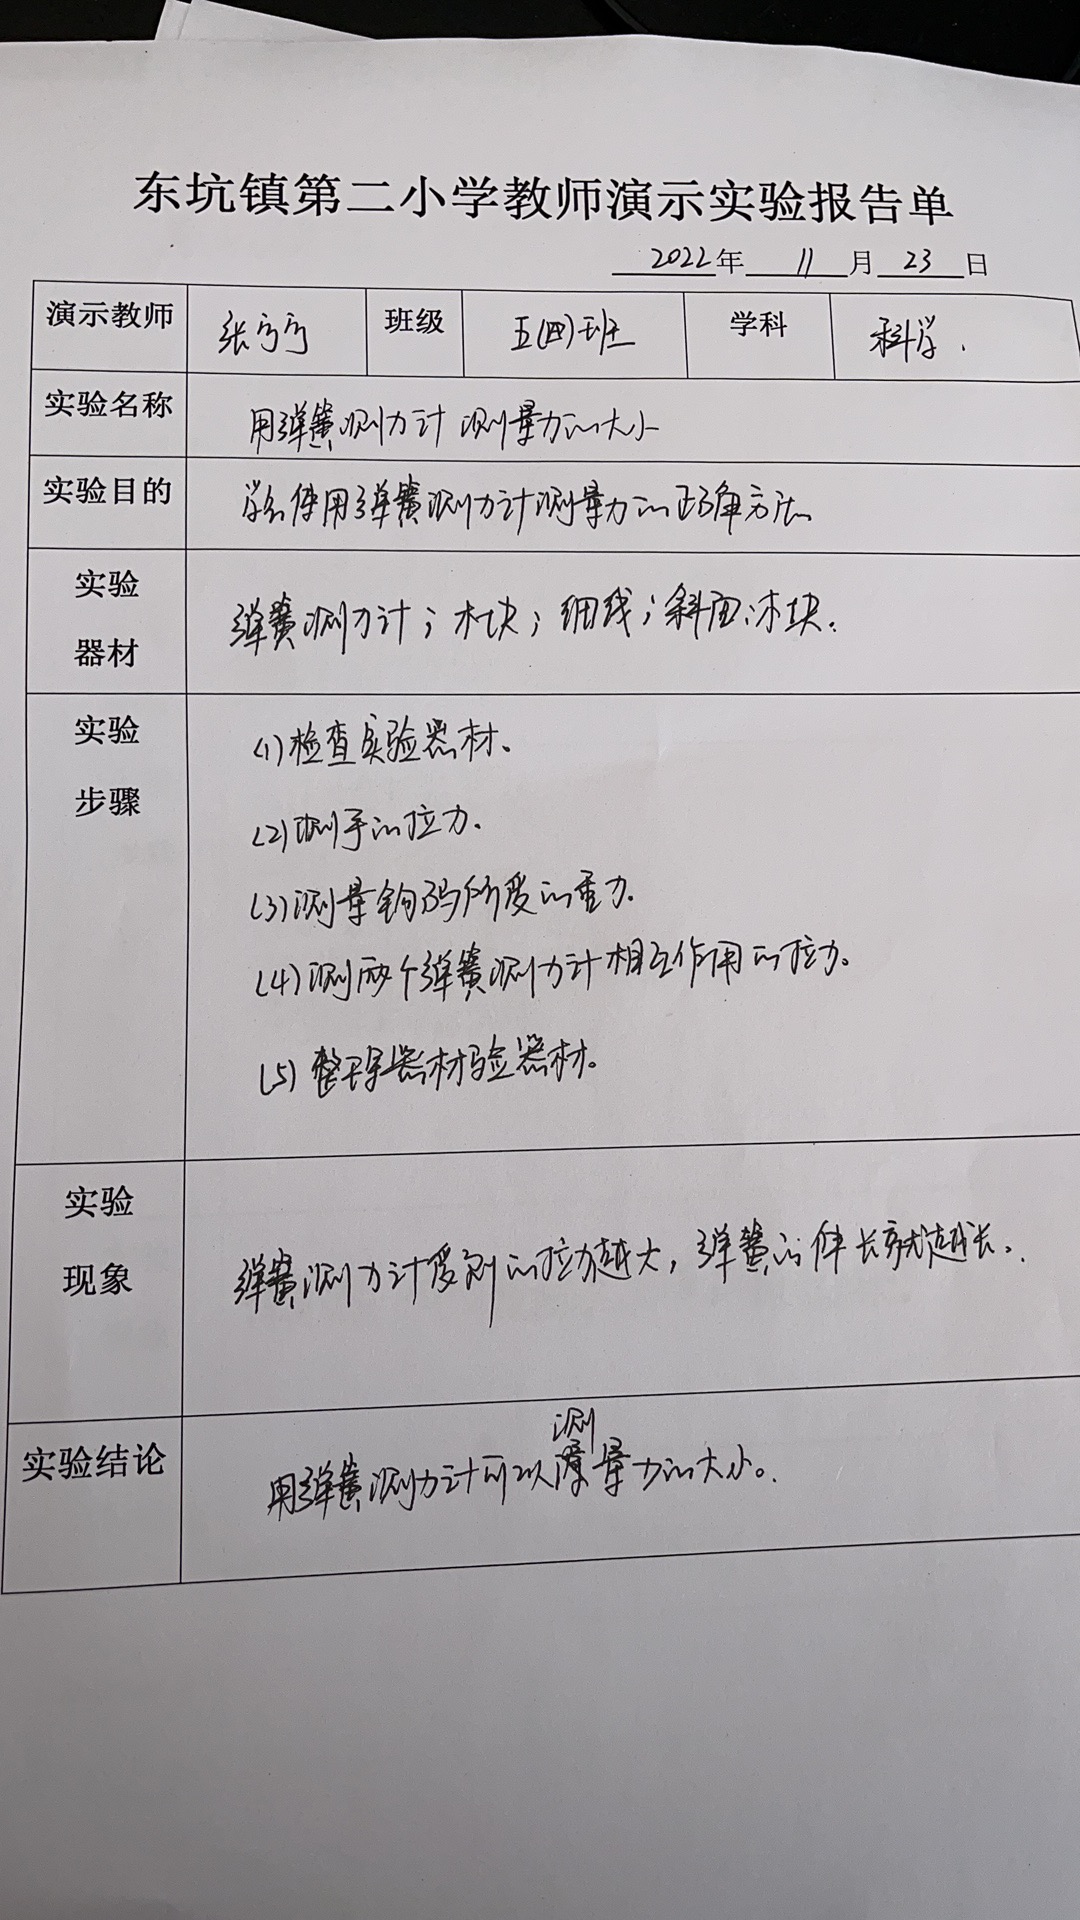 东坑镇第二小学教师演示实验报告单
2022年 11月 23日
演示教师 张 班级 五(四)班 学科 科学.
实验名称 用弹簧测力计测量力的大小
实验目的 学会使用弹簧测力计测量力的正确方法
实验器材 弹簧测力计;木块;细线;斜面;木块.
实验步骤
(1)检查实验器材。
(2)测手的拉力.
(3)测量钩码所受的重力.
(4)测两个弹簧测力计相互作用的拉力。
(5)整理器材验器材。
实验现象 弹簧测力计受到的拉力越大,弹簧的伸长就越长。
实验结论 用弹簧测力计可以测量力的大小。